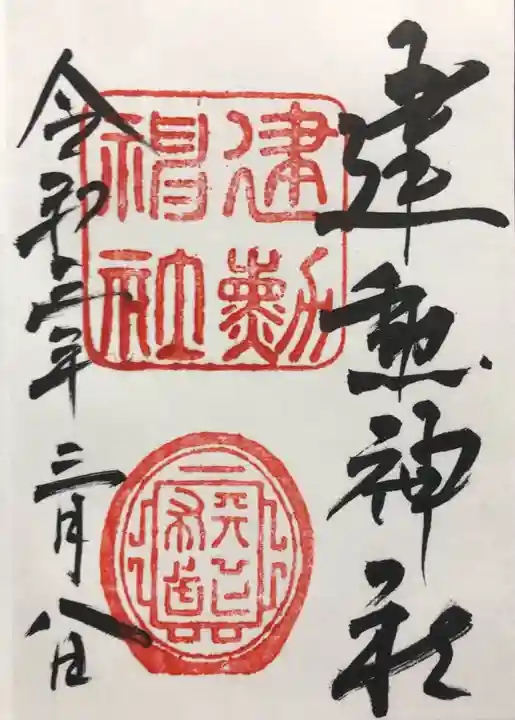 建勲神社
建勲
神社
令和三年三月八日